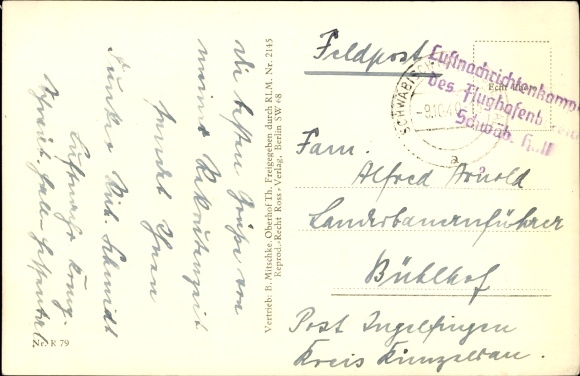 Die besten Grüße von
meiner Rekrutenzeit
sendet Ihnen
Funker Wilh. Schmidt
Luftnachr. Komp.
Schwäb. Hall
Nr. R 79
Vertrieb: B. Mitschke, Oberhof Th. Freigegeben durch RLM. Nr. 2145
Reprod.-Recht Ross-Verlag, Berlin SW 68
Feldpost
Luftnachrichtenkomp
des Flughafenb
Schwäb. Hall
SCHWÄBISCH
-9.10.40
a
Echt
Fam.
Alfred Arnold
Landesbauernführer
Bühlhof
Post Ingelfingen
Kreis Künzelsau.